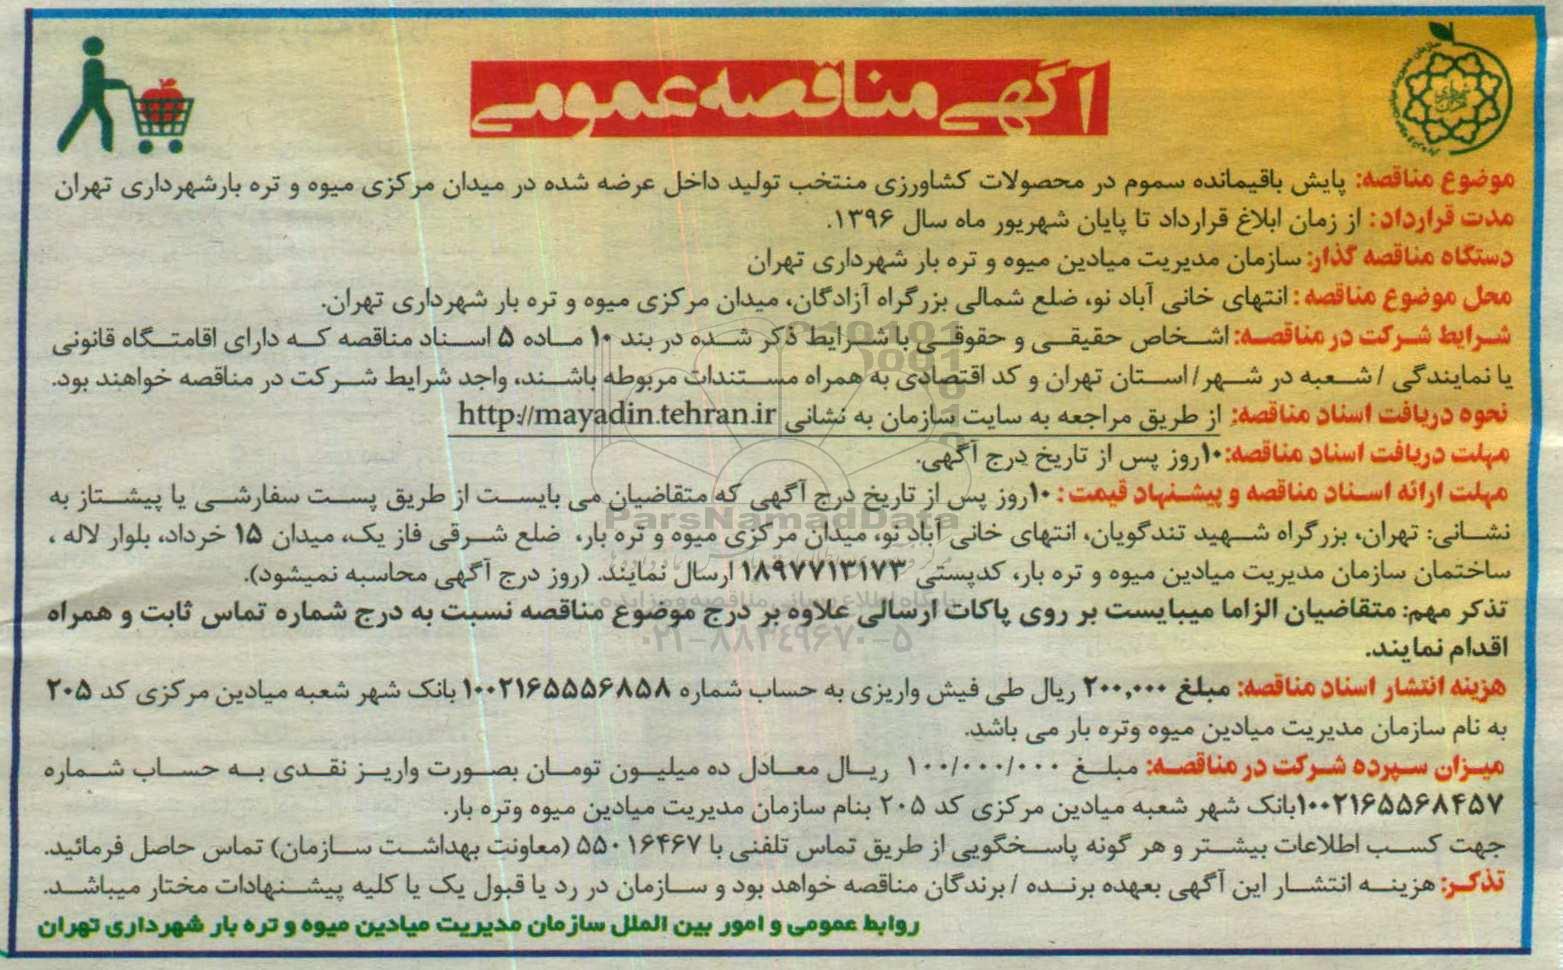 آگهی مناقصه عمومی
موضوع مناقصه: پایش باقیمانده سموم در محصولات کشاورزی منتخب تولید داخل عرضه شده در میدان مرکزی میوه و تره بارشهرداری تهران
مدت قرارداد: از زمان ابلاغ قرارداد تا پایان شهریور ماه سال ۱۳۹۶.
دستگاه مناقصه گذار: سازمان مدیریت میادین میوه و تره بار شهرداری تهران
محل موضوع مناقصه: انتهای خانی آباد نو، ضلع شمالی بزرگراه آزادگان، میدان مرکزی میوه و تره بار شهرداری تهران.
شرایط شرکت در مناقصه: اشخاص حقیقی و حقوقی با شرایط ذکر شده در بند ۱۰ ماده ۵ اسناد مناقصه که دارای اقامتگاه قانونی
یا نمایندگی / شعبه در شهر/ استان تهران و کد اقتصادی به همراه مستندات مربوطه باشند، واجد شرایط شرکت در مناقصه خواهند بود.
نحوه دریافت اسناد مناقصه: از طریق مراجعه به سایت سازمان به نشانی http://mayadin.tehran.ir
مهلت دریافت اسناد مناقصه: ۱۰روز پس از تاریخ درج آگهی.
مهلت ارائه اسناد مناقصه و پیشنهاد قیمت: ۱۰روز پس از تاریخ درج آگهی که متقاضیان می بایست از طریق پست سفارشی یا پیشتاز به
نشانی: تهران، بزرگراه شهید تندگویان، انتهای خانی آباد نو، میدان مرکزی میوه و تره بار، ضلع شرقی فاز یک، میدان ۱۵ خرداد، بلوار لاله ،
ساختمان سازمان مدیریت میادین میوه و تره بار، کدپستی ۱۸۹۷۷۱۳۱۷۳ ارسال نمایند. (روز درج آگهی محاسبه نمیشود).
تذکر مهم: متقاضیان الزاما میبایست بر روی پاکات ارسالی علاوه بر درج موضوع مناقصه نسبت به درج شماره تماس ثابت و همراه
اقدام نمایند.
هزینه انتشار اسناد مناقصه: مبلغ ۲۰۰,۰۰۰ ریال طی فیش واریزی به حساب شماره ۱۰۰۲۱۶۵۵۵۶۸۵۸ بانک شهر شعبه میادین مرکزی کد ۲۰۵
به نام سازمان مدیریت میادین میوه وتره بار می باشد.
میزان سپرده شرکت در مناقصه: مبلغ ۱۰۰/۰۰۰/۰۰۰ ریال معادل ده میلیون تومان بصورت واریز نقدی به حساب شماره
۱۰۰۲۱۶۵۵۶۸۴۵۷بانک شهر شعبه میادین مرکزی کد ۲۰۵ بنام سازمان مدیریت میادین میوه وتره بار.
جهت کسب اطلاعات بیشتر و هر گونه پاسخگویی از طریق تماس تلفنی با ۵۵۰۱۶۴۶۷ (معاونت بهداشت سازمان) تماس حاصل فرمائید.
تذکر: هزینه انتشار این آگهی بعهده برنده / برندگان مناقصه خواهد بود و سازمان در رد یا قبول یک یا کلیه پیشنهادات مختار میباشد.
روابط عمومی و امور بین الملل سازمان مدیریت میادین میوه و تره بار شهرداری تهران
ParsNamadData
پایگاه اطلاع رسانی مناقصه و مزایده
۰۲۱-۸۸۳۴۹۶۷۰-۵